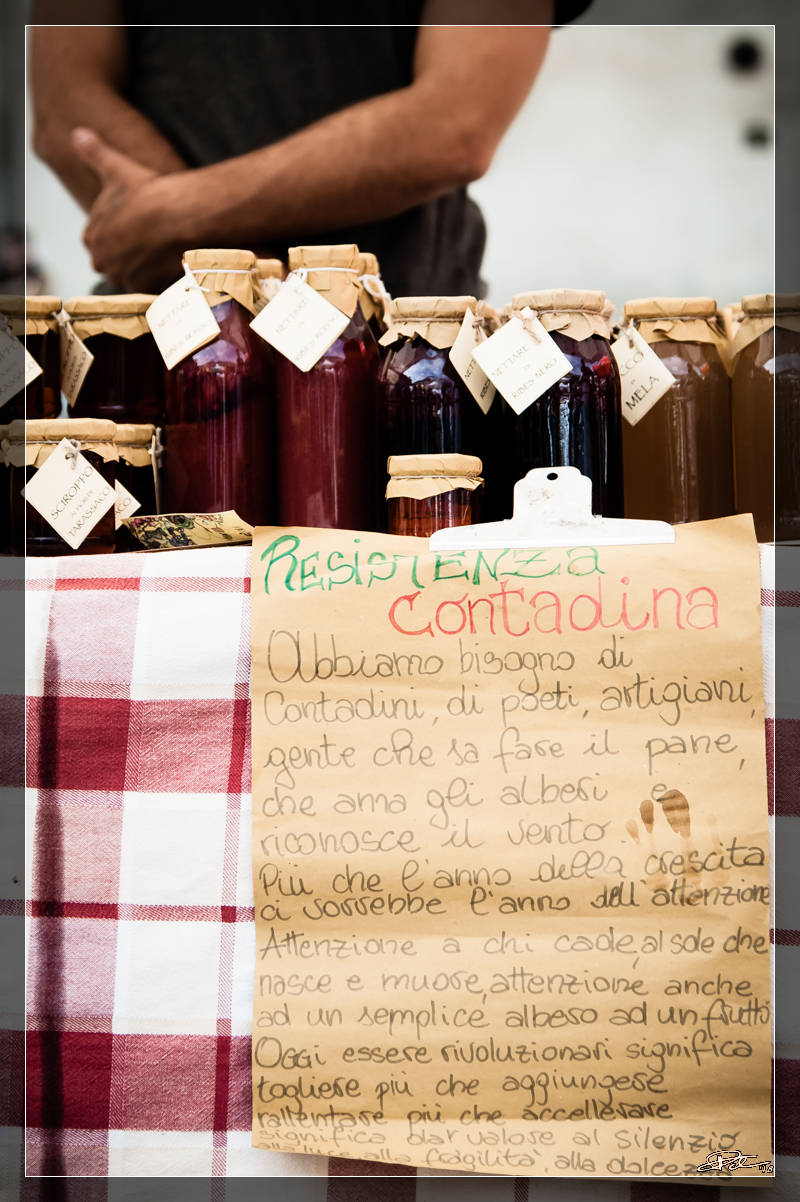 NETTARE
DI
RIBES ROSSI
NETTARE
DI
RIBES ROSSI
NETTARE
DI
RIBES NERO
NETTARE
DI
RIBES NERO
CCO
DI
MELA
SCIROPPO
DI FIORI DI
TARASSACO
Resistenza
contadina
Abbiamo bisogno di
Contadini, di poeti, artigiani,
gente che sa fare il pane,
che ama gli alberi e
riconosce il vento.
Più che l'anno della crescita
ci vorrebbe l'anno dell'attenzione
Attenzione a chi cade, al sole che
nasce e muore, attenzione anche
ad un semplice albero ad un frutto
Oggi essere rivoluzionari significa
togliere più che aggiungere
rallentare più che accellerare
significa dar valore al silenzio
alla luce, alla fragilità, alla dolcezza